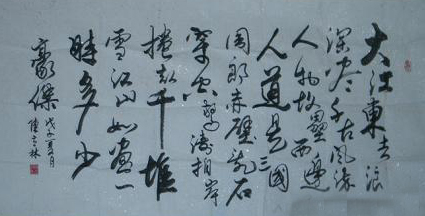 大江東去浪
淘尽千古風流
人物故壘西邊
人道是三國
周郎赤壁乱石
穿空驚濤拍岸
捲起千堆
雪江山如畫一
時多少
豪傑
戊子夏月